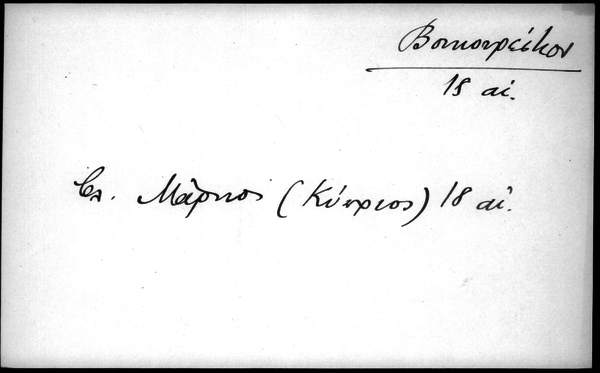 Βουκουρέστιον
18 αἰ.
βλ. Μᾶρκος (Κύπριος) 18 αἰ.